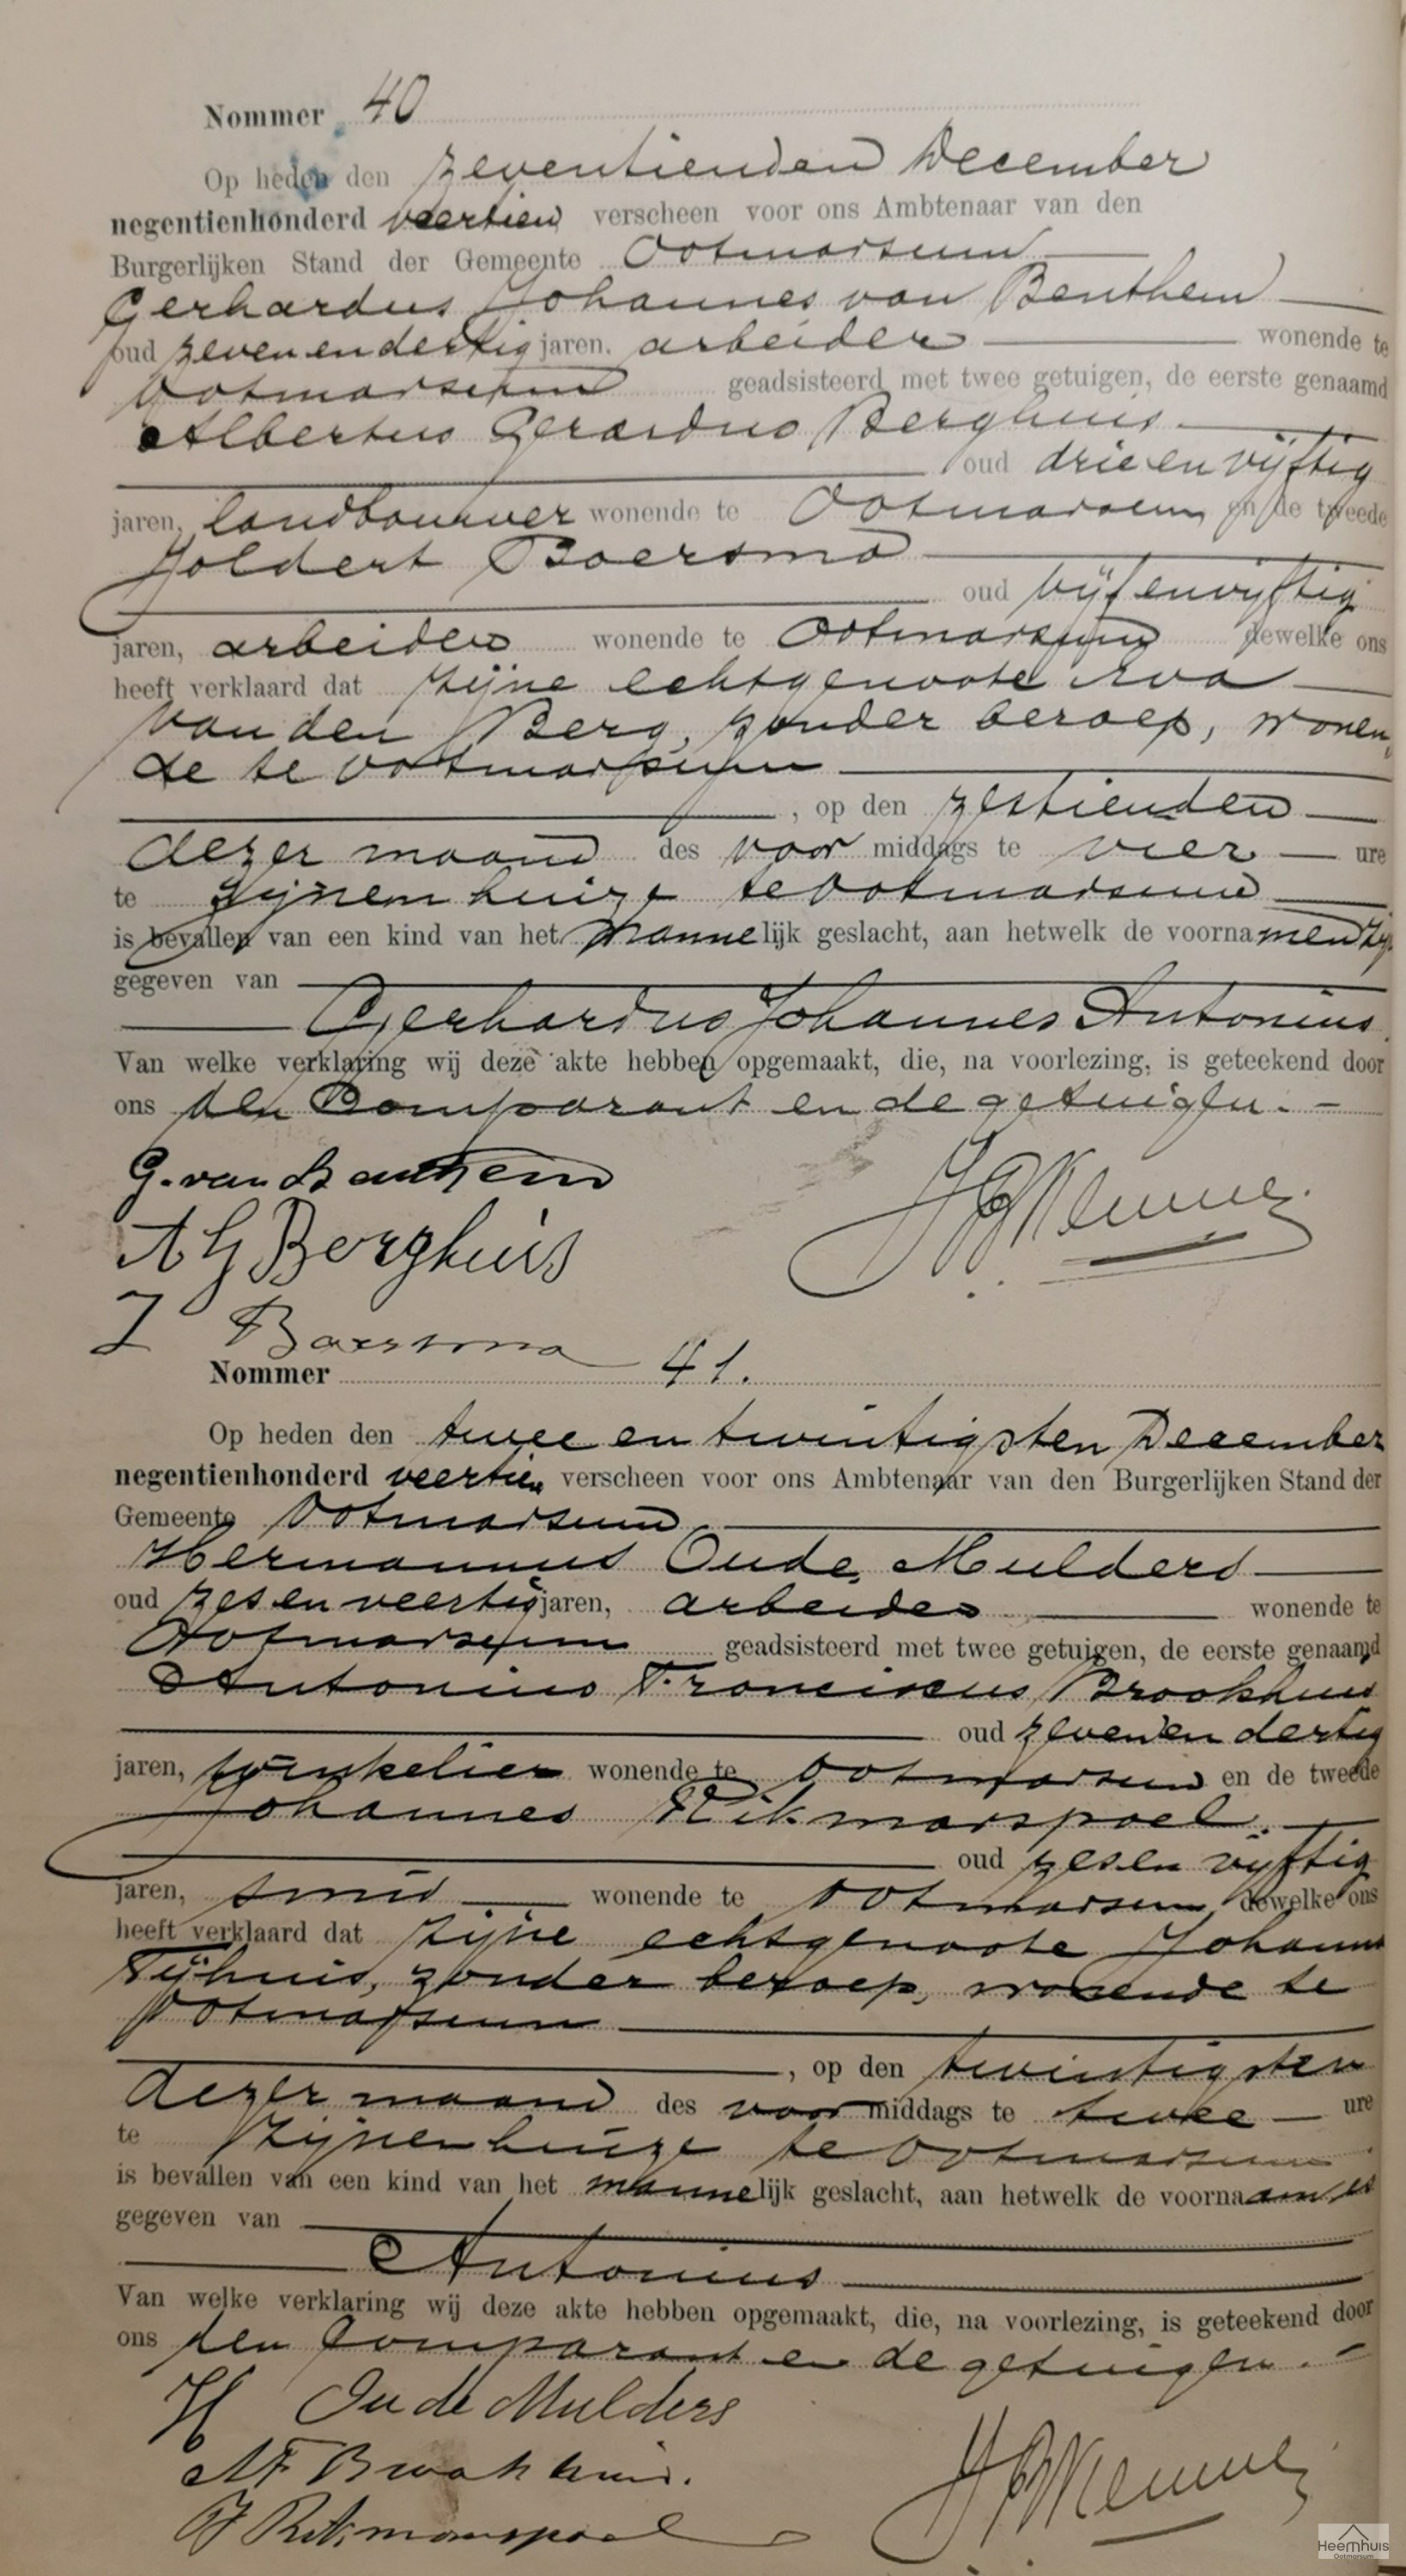 Nommer 40
Op heden den zeventienden December
negentienhonderd veertien verscheen voor ons Ambtenaar van den
Burgerlijken Stand der Gemeente Ootmarsum
Gerhardus Johannes van Benthem
oud zevenendertig jaren, arbeider wonende te
Ootmarsum geadsisteerd met twee getuigen, de eerste genaamd
Albertus Gerardus Berghuis
oud drieenvijftig
jaren, landbouwer wonende te Ootmarsum en de tweede
Joldert Boersma
oud vijfenvijftig
jaren, arbeider wonende te Ootmarsum dewelke ons
heeft verklaard dat zijne echtgenoote Eva
van den Berg, zonder beroep, wonen,
de te Ootmarsum
, op den zestienden
dezer maand des voor middags te vier ure
te zijnen huize te Ootmarsum
is bevallen van een kind van het mannelijk geslacht, aan hetwelk de voornamen zijn
gegeven van
Gerhardus Johannes Antonius
Van welke verklaring wij deze akte hebben opgemaakt, die, na voorlezing, is geteekend door
ons den Comparant en de getuigen.
G. van Benthem
A G Berghuis
J Boersma
Nommer 41.
Op heden den twee en twintigsten December
negentienhonderd veertien verscheen voor ons Ambtenaar van den Burgerlijken Stand der
Gemeente Ootmarsum
Hermannus Oude Mulders
oud zesenveertig jaren, arbeider wonende te
Ootmarsum geadsisteerd met twee getuigen, de eerste genaamd
Antonius Franciscus Brookhuis
oud zevenendertig
jaren, winkelier wonende te Ootmarsum en de tweede
Johannes Rikmanspoel
oud zesenvijftig
jaren, smid wonende te Ootmarsum dewelke ons
heeft verklaard dat zijne echtgenoote Johanna
Tijhuis, zonder beroep, wonende te
Ootmarsum
, op den twintigsten
dezer maand des voor middags te twee ure
te zijnen huize te Ootmarsum
is bevallen van een kind van het mannelijk geslacht, aan hetwelk de voornaam is
gegeven van
Antonius
Van welke verklaring wij deze akte hebben opgemaakt, die, na voorlezing, is geteekend door
ons den Comparant en de getuigen.
H Oude Mulders
AF Brookhuis.
J Rikmanspoel
Heemhuis
Ootmarsum